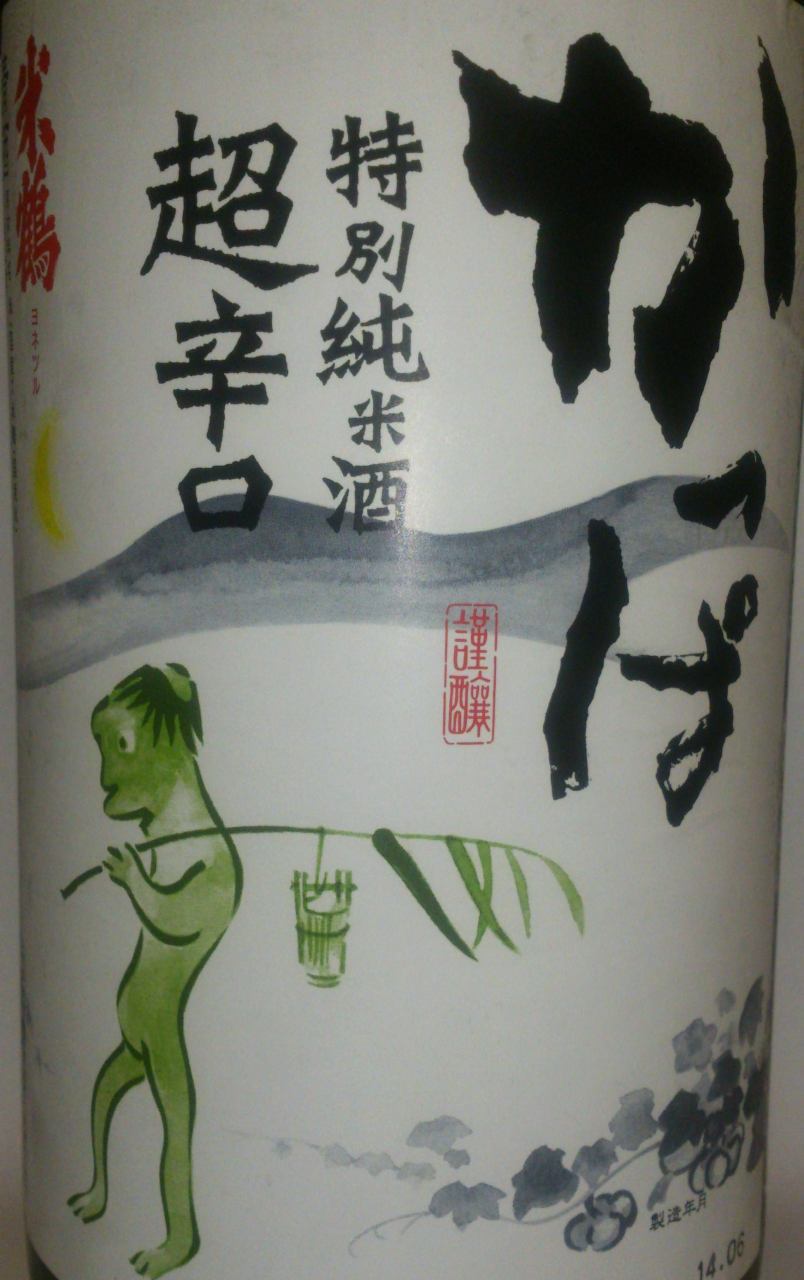 かっぱ
特別純米酒
超辛口
謹醸
米鶴
ヨネツル
製造年月
14.06